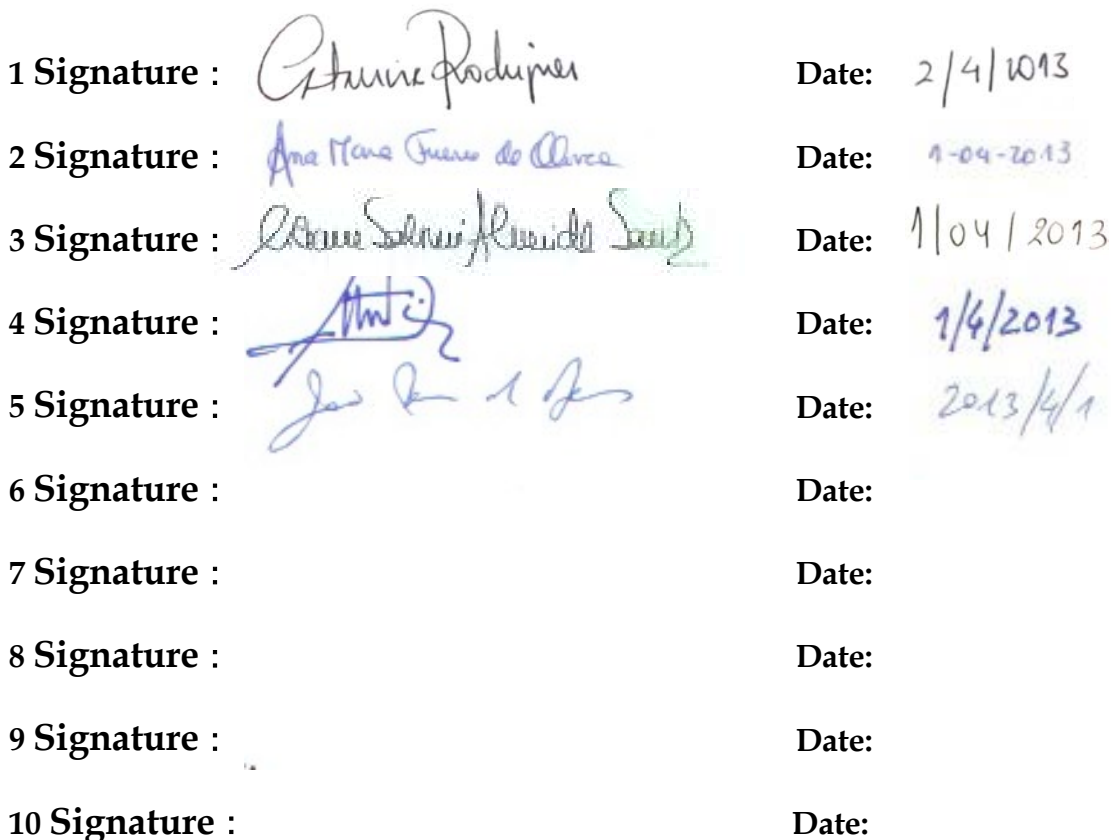 1 Signature : Catarina Rodrigues Date: 2/4/2013
2 Signature : Ana Maria de Date: 1-04-2013
3 Signature : Almeida Date: 1/04/2013
4 Signature : Date: 1/4/2013
5 Signature : Date: 2013/4/1
6 Signature : Date:
7 Signature : Date:
8 Signature : Date:
9 Signature : Date:
10 Signature : Date: